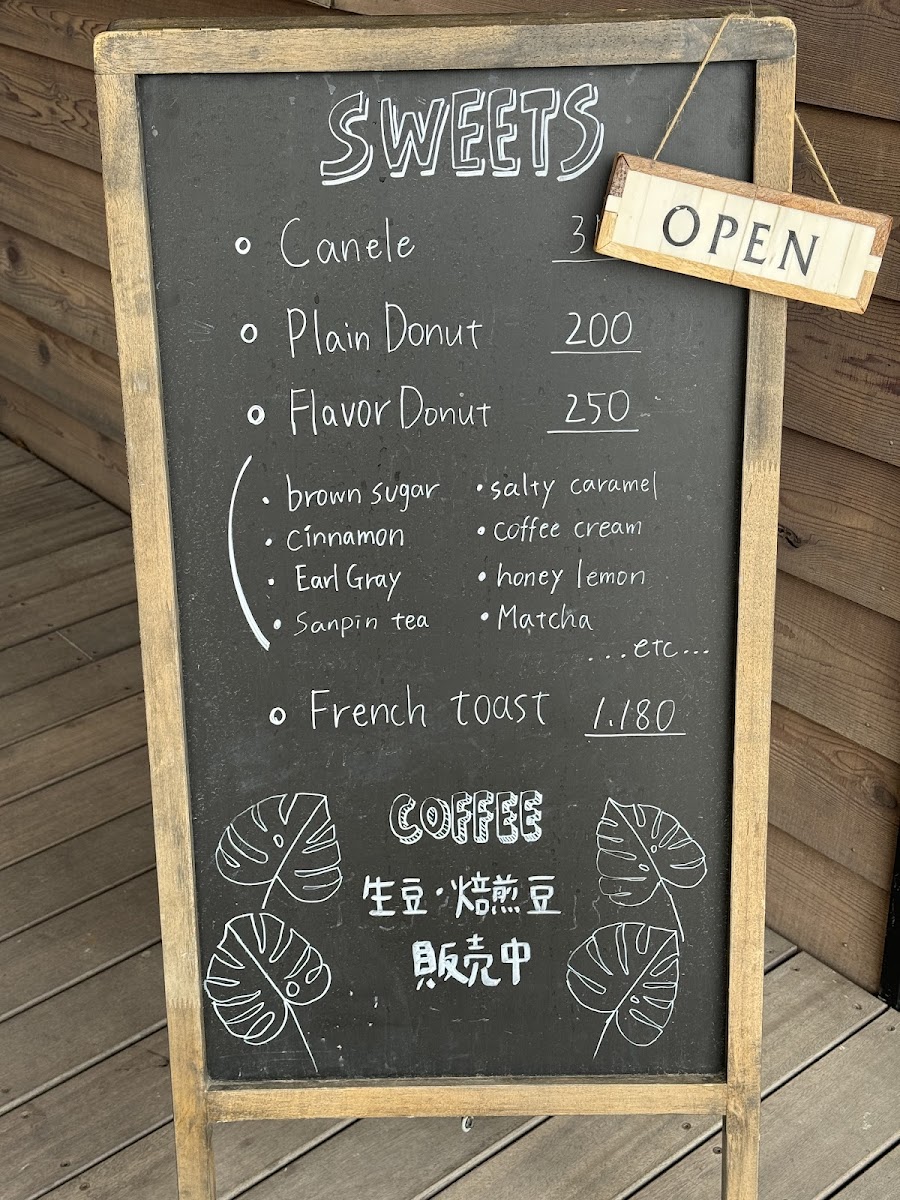 SWEETS
OPEN
Canele
Plain Donut 200
Flavor Donut 250
・brown sugar ・salty caramel
・cinnamon ・coffee cream
・Earl Gray ・honey lemon
・Sanpin tea ・Matcha
...etc...
French toast 1.180
COFFEE
生豆・焙煎豆
販売中